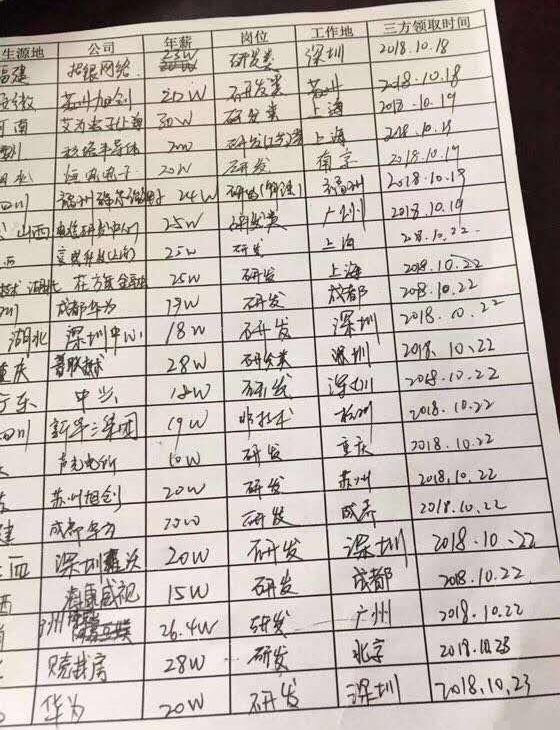 生源地 公司 年薪 岗位 工作地 三方领取时间
福建 招银网络 23W 研发类 深圳 2018.10.18
安徽 苏州旭创 20W 研发类 苏州 2018.10.18
河南 艾为电子上海 30W 研发类 上海 2018.10.19
研发 上海 2018.10.19
电子 20W 研发 南京 2018.10.19
四川 福州瑞芯微电子 24W 研发 福州 2018.10.19
山西 25W 研发类 广州 2018.10.19
西 25W 研发 上海 2018.10.22
湖北 东方财富 25W 研发 上海 2018.10.22
川 成都华为 19W 研发 成都 2018.10.22
湖北 深圳中兴 18W 研发 深圳 2018.10.22
重庆 28W 研发类 深圳 2018.10.22
广东 中兴 18W 研发 深圳 2018.10.22
四川 新华三集团 19W 技术 杭州 2018.10.22
10W 研发 重庆 2018.10.22
苏州旭创 20W 研发 苏州 2018.10.22
建 成都华为 20W 研发 成都 2018.10.22
深圳 20W 研发 深圳 2018.10.22
西 海康威视 15W 研发 成都 2018.10.22
广州 26.4W 研发 广州 2018.10.22
贝壳找房 28W 研发 北京 2018.10.23
华为 20W 研发 深圳 2018.10.23